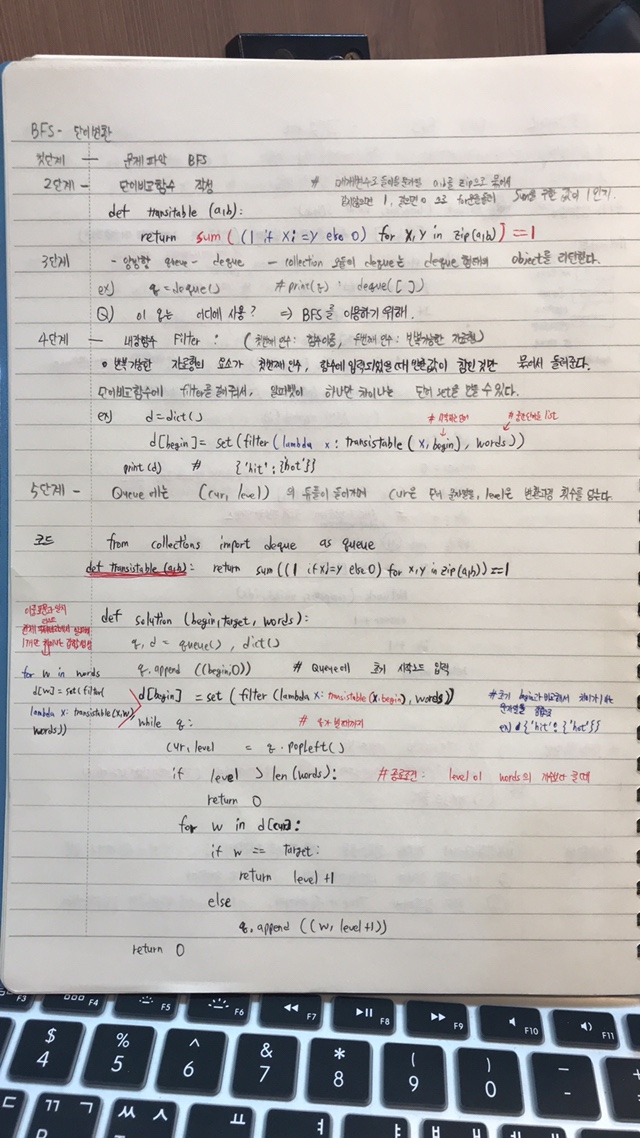 BFS - 단어변환
첫단계 — 문제파악 BFS
2단계 - 단어비교함수 작성 # 매개변수로 들어온 문자열 a,b를 zip으로 묶어서
같지않으면 1, 같으면 0 으로 for문돌려 Sum을 구한 값이 1인가?
def transitable (a,b):
return sum( (1 if X!=Y else 0) for X,Y in zip(a,b) ) ==1
3단계 - 양방향 queue - deque — collection 모듈의 deque는 deque 형태의 object를 리턴한다.
ex) q = deque() # print(q) : deque([ ])
Q) 이 큐는 어디에 사용? => BFS를 이용하기 위해.
4단계 — 내장함수 Filter : (첫번째 인수 : 함수이름, 두번째 인수 : 반복가능한 자료형)
• 반복가능한 자료형의 요소가 첫번째 인수, 함수에 입력되었을 때 반환값이 참인 것만 묶어서 돌려준다.
단어비교함수에 filter를 해서, 알파벳이 하나만 차이나는 단어 set을 만들 수 있다.
ex) d=dict() # 시작단어 # 단어 list
d[begin] = set (filter (lambda x : transistable ( x, begin), words))
print (d) # {'hit' : {'hot'}}
5단계 - Queue 에는 (cur, level) 의 튜플이 들어가며 cur은 단어 문자열을, level은 변환과정 횟수를 담는다.
코드 from collections import deque as queue
def transistable (a,b): return sum ((1 if x!=y else 0) for x,y in zip(a,b)) ==1
def solution (begin, target, words):
q, d = queue() , dict()
q. append ((begin,0)) # Queue에 초기 시작노드 입력
for w in words
d[w] = set( filter(
lambda x: transistable(x,w)
words))
d[begin] = set ( filter (lambda x: transistable(x.begin), words))
ex) d {'hit' : {'hot'}}
while q:
cur, level = q. popleft()
if level > len (words): # 종료조건 : level이 words의 개수보다 클때
return 0
for w in d[cur]:
if w == target:
return level +1
else
q. append ((w, level+1))
return 0
F3
F4
F5
F6
F7
F8
F9
F10
F11
$ 4
% 5
^ 6
& 7
* 8
( 9
) 0
ㄷ
ㄲ ㄱ
ㅆ ㅅ
ㅛ
ㅕ
ㅑ